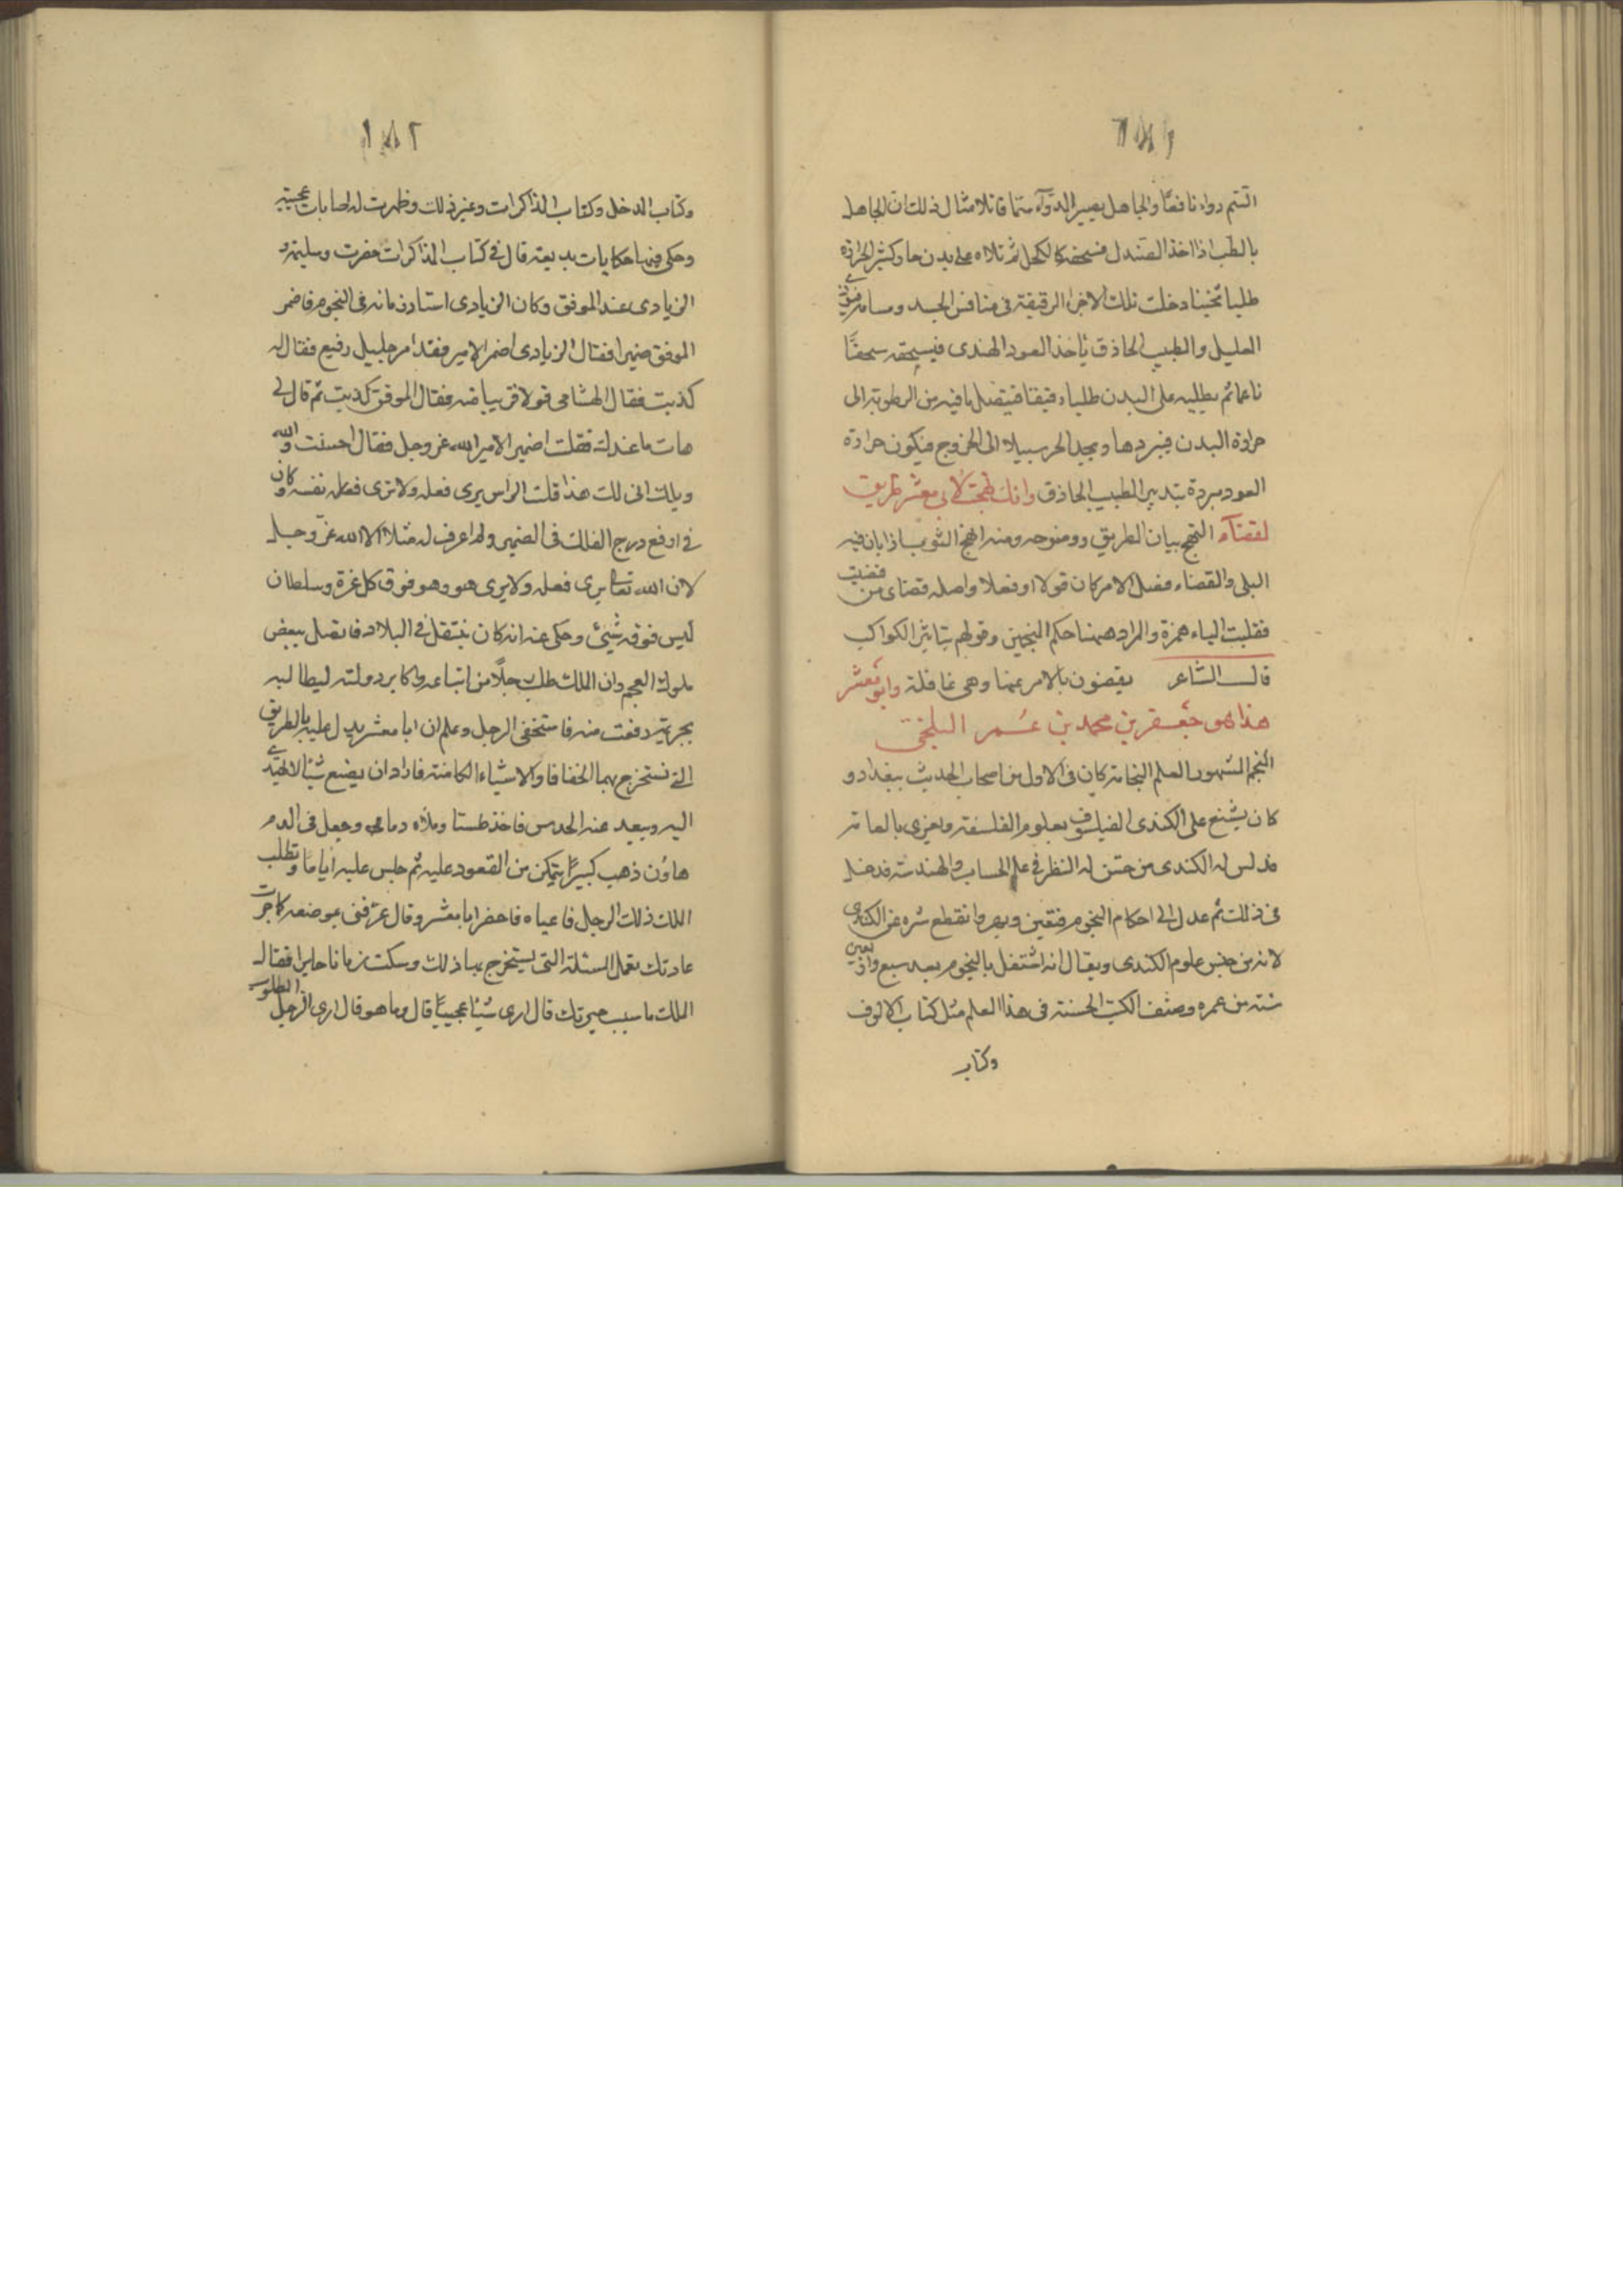 السّم دواء نافعًا والجاهل يصير الدّوآء سمّا قاتلا مثال ذلك ان الجاهل
بالطب اذا اخذ الصندل فسحقه كالكحل ثم طلاه على بدن حار كثير الحرارة
طليا ثخينا دخلت تلك الاجزا الرقيقة فى منافس الجسد ومسامه
العليل والطبيب الحاذق يأخذ العود الهندى فيسحقه سحقًا
ناعما ثم يطليه على البدن طلياء رقيقا فيتصل ما فيه من الرطوبة الى
حرارة البدن فيبردها ويجد الحر سبيلا الى الخروج فيكون حرارة
العود مبردة بتدبير الطبيب الحاذق وانك نهجت لأبى معشر طريق
لقضآء النهج بيان الطريق ووضوحه ومنه انهج الثوب اذا بان فيه
البلى والقضاء فصل الامر كان قولا او فعلا واصله قضاى من قضيت
فقلبت الياء همزة والمراد ههنا حكم المنجمين وقولهم بتاثير الكواكب
قال الشاعر يقضون بالامر عنها وهى غافلة وابو معشر
هذا هو جعفر بن محمد بن عمر البلخى
المنجم المشهور العلم النجامة كان فى الاول من اصحاب الحديث ببغداد و
كان يشنع على الكندى الفيلسوف بعلوم الفلسفة ويغزى بالعامة
فدلس له الكندى من حسّن له النظر فى علم الحساب والهندسة فدخل
فى ذلك ثم عدل الى احكام النجوم وانقطع شره عن الكندى
لانه من جنس علوم الكندى ويقال انه اشتغل بالنجوم بعد سبع واربعين
سنة من عمره وصنف الكتب الحسنة فى هذا العلم مثل كتاب الالوف
وكتاب
١٨٢
وكتاب المدخل وكتاب المذاكرات وغير ذلك وظهرت له اصابات عجيبة
وحكى فيها حكايات بديعة قال فى كتاب المذاكرات حضرت وسليمه و
الزيادى عند الموفق وكان الزيادى استاذ زمانه فى النجوم فاضمر
الموفق ضميرا فقال الزيادى اضمر الامير فقد أمر جليل رفيع فقال له
كذبت فقال الهشامى قولا قريبا منه فقال الموفق كذبت ثم قال لى
هات ما عندك فقلت اضمير الامير الله عز وجل فقال احسنت والله
ويلك انى لك هذا قلت الرأس يرى فعله ولا يرى نفسه وكان
فى ارفع درج الفلك فى الضمير ولم اعرف له مثلا الا الله عزّ وجل
لان الله تعالى يرى فعله ولا يرى هو وهو فوق كل عزة وسلطان
ليس فوقه شيئ وحكى عنه انه كان ينتقل فى البلاد فاتصل ببعض
ملوك العجم وان الملك طلب رجلًا من اتباعه واكابر دولته ليطالبه
بجريمة وقعت منه فاستخفى الرجل وعلم ان ابا معشر يدل عليه بالطريق
التى تستخرج بها الخفايا والاشياء الكامنة فاراد ان يصنع شيئا لا يهتدى
اليه ويبعد عنه الحدس فاخذ طستا وملأه دماء وجعل فى الدم
هاون ذهب كبيرًا يتمكن من القعود عليه ثم جلس عليه اياما وتطلب
الملك ذلك الرجل فاعياه فاحضر ابا معشر وقال عرّفنى بموضعه كما جرت
عادتك بعمل المسئلة التى يستخرج بها ذلك وسكت زمانا حايرا فقال
الملك ما سبب حيرتك قال ارى شيئا عجيبًا قال وما هو قال ارى الرجل المطلوب